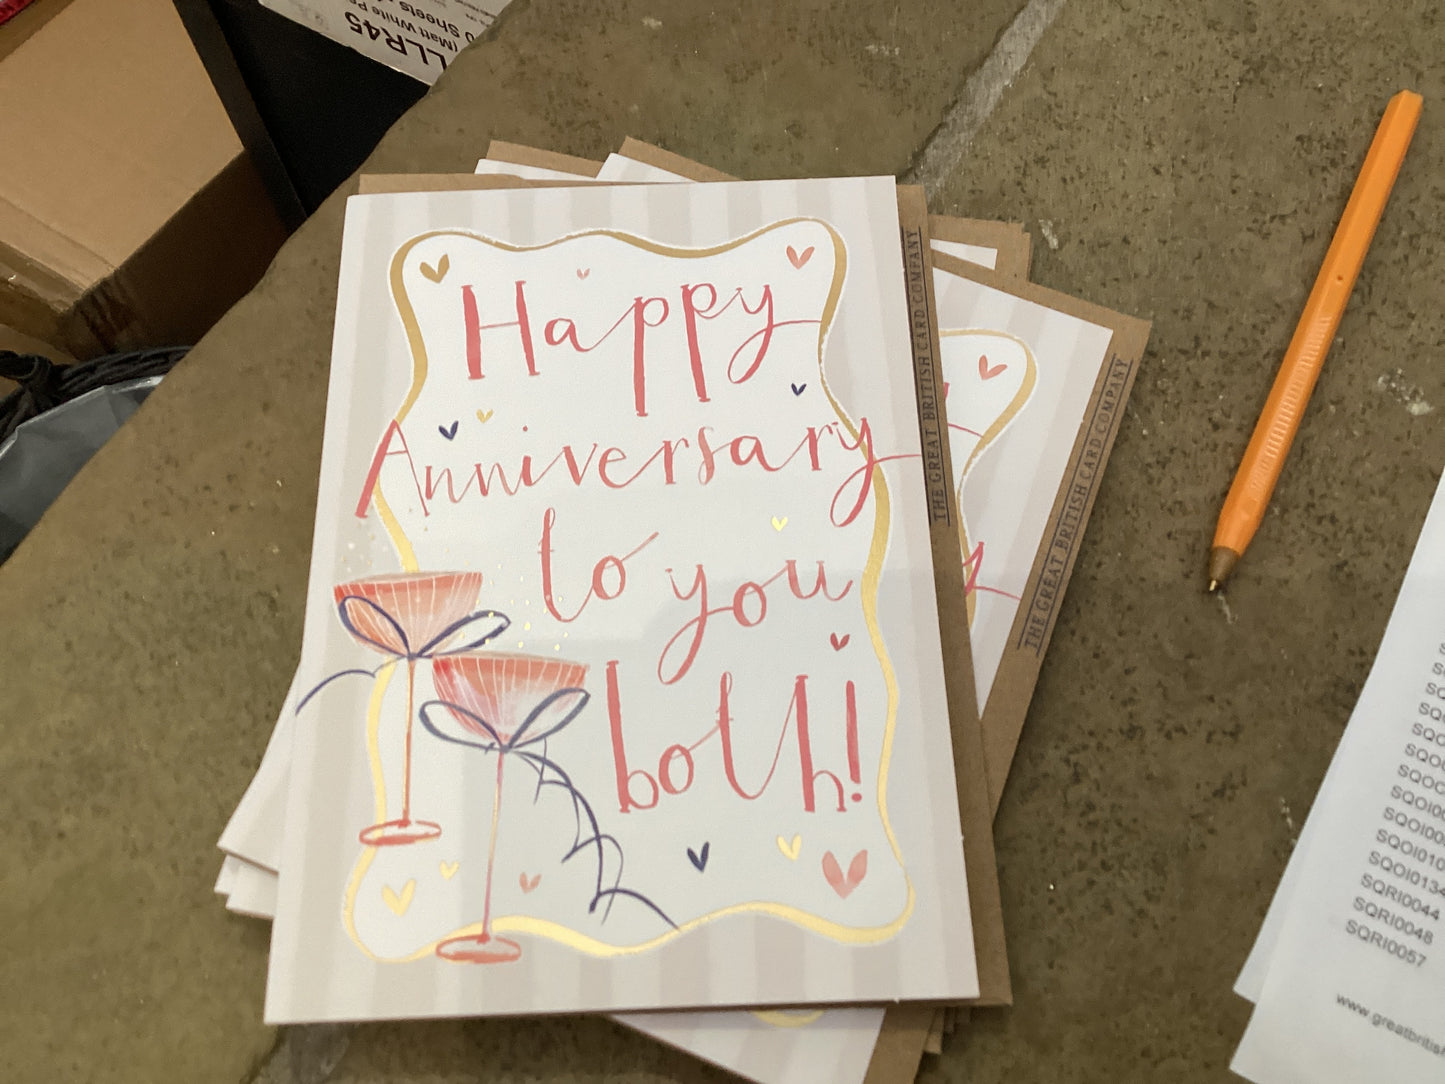 LLR45
(Matt White
Sheets
Happy
Anniversary
to you
both!
THE GREAT BRITISH CARD COMPANY
THE GREAT BRITISH CARD COMPANY
SQOI010
SQOI0134
SQRI0044
SQRI0048
SQRI0057
www.greatbritish